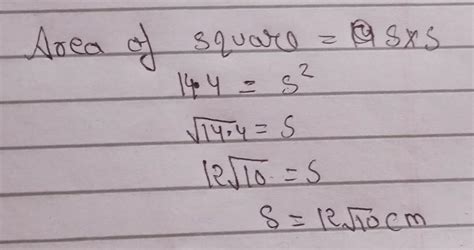 Area of square = S×S
14.4 = S²
√14.4 = S
12√10 = S
S = 12√10 cm